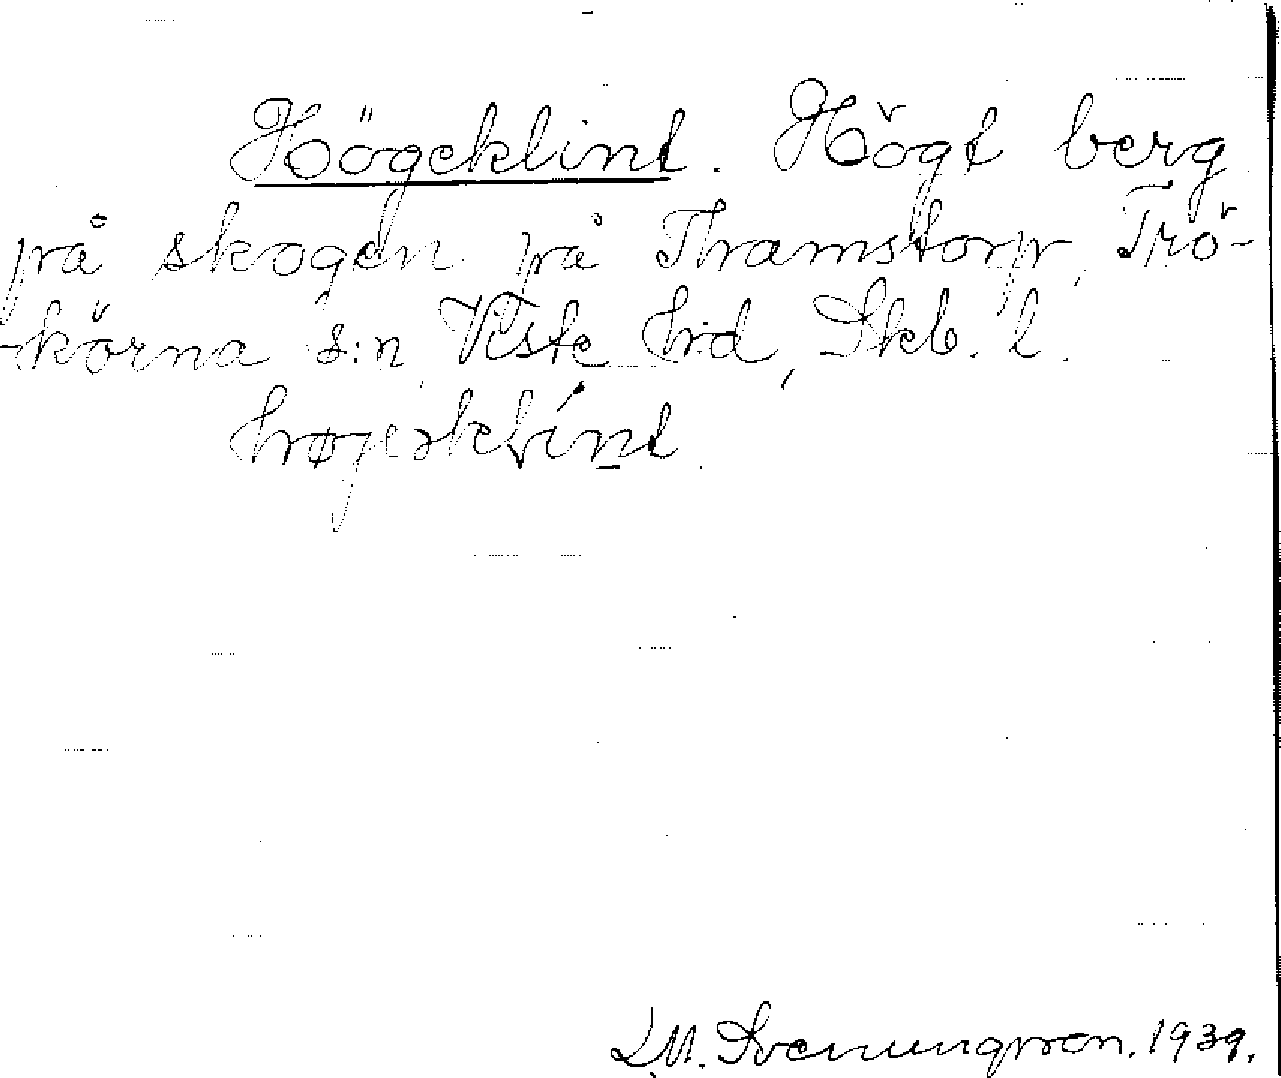 Högeklint. Högt berg
på skogen på Thamstorp, Trö-
-körna s:n Viste hrd, Skb. l.
L.M. Svenungsson. 1939.